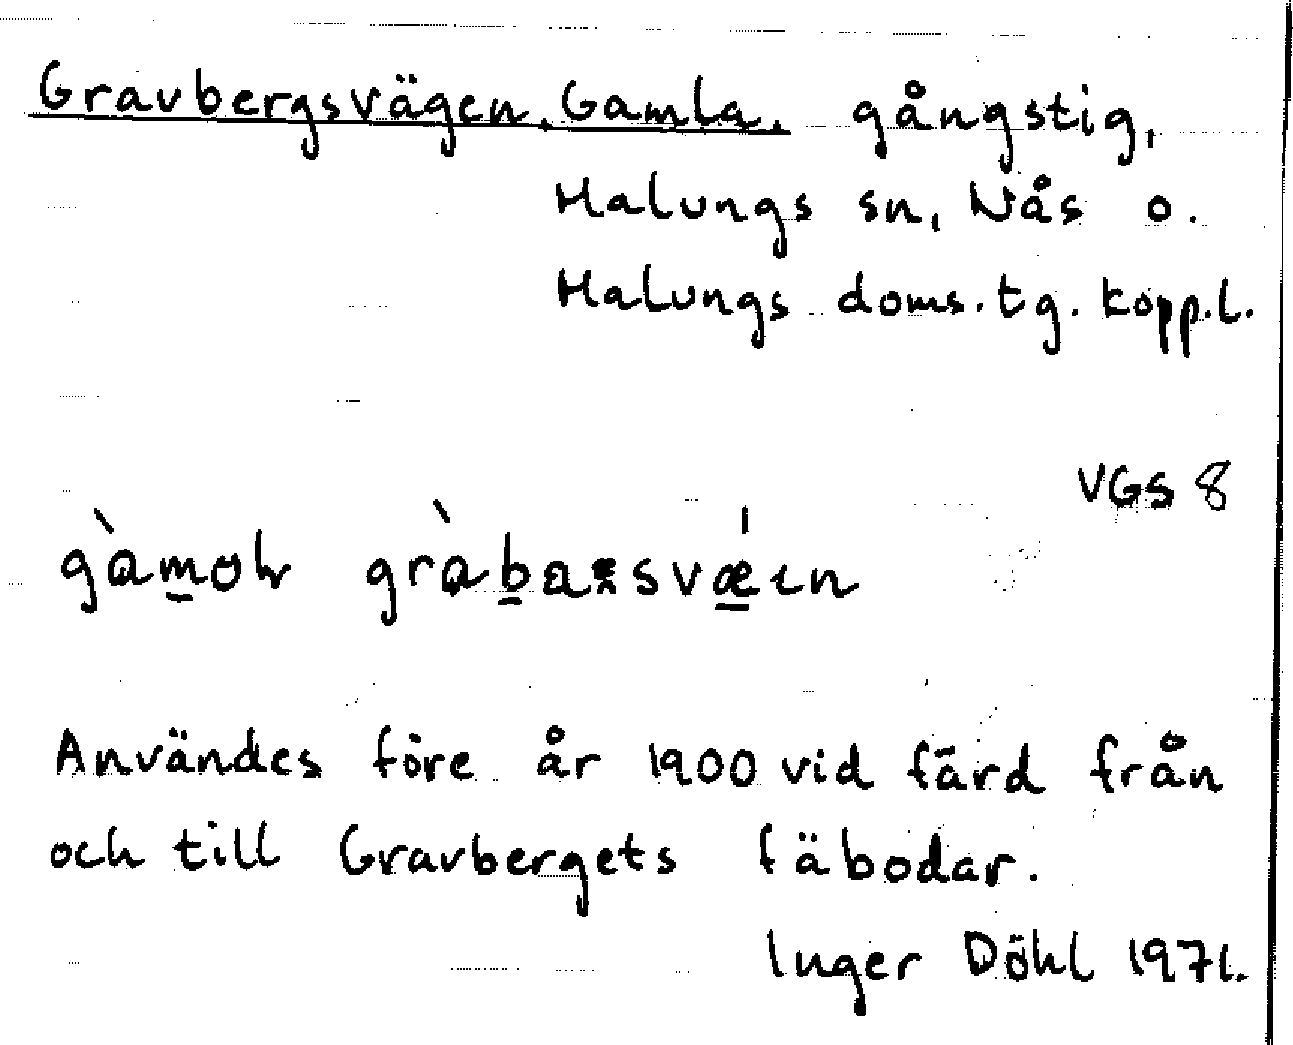 Gravbergsvägen, Gamla, gångstig,
Malungs sn, Nås o.
Malungs doms.tg. Kopp.l.
VGS 8
Användes före år 1900 vid färd från
och till Gravbergets fäbodar.
Inger Döhl 1971.